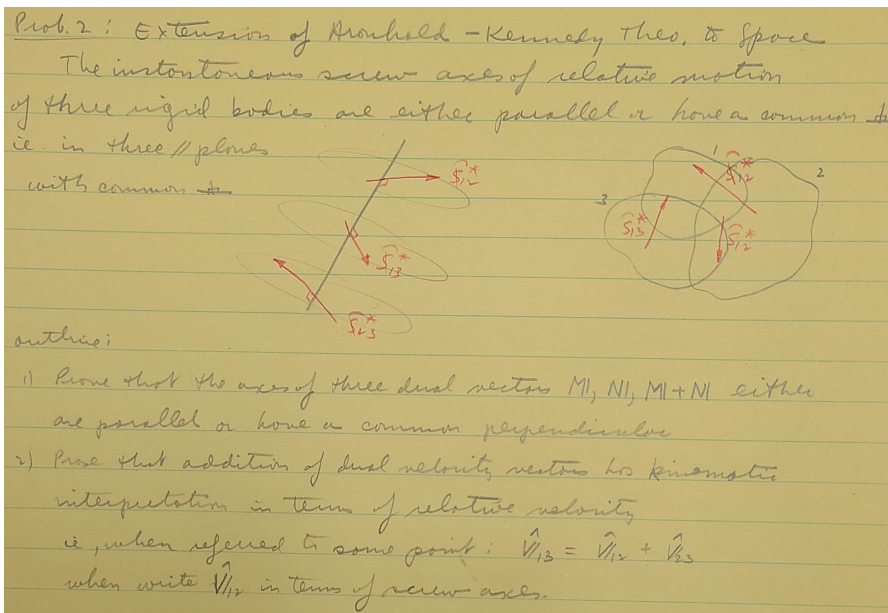 Prob. 2 : Extension of Aronhold - Kennedy Theo. to Space
The instantaneous screw axes of relative motion
of three rigid bodies are either parallel or have a common ⊥
ie. in three // planes
with common ⊥
Ŝ₁₂*
Ŝ₁₃*
Ŝ₂₃*
1
Ŝ₁₂*
2
3
Ŝ₁₃*
Ŝ₁₂*
outline:
1) Prove that the axes of three dual vectors M, N, M + N either
are parallel or have a common perpendicular
2) Prove that addition of dual velocity vectors has kinematic
interpretation in terms of relative velocity
ie, when referred to some point : V̂₁₃ = V̂₁₂ + V̂₂₃
when write V̂₁₂ in terms of screw axes.